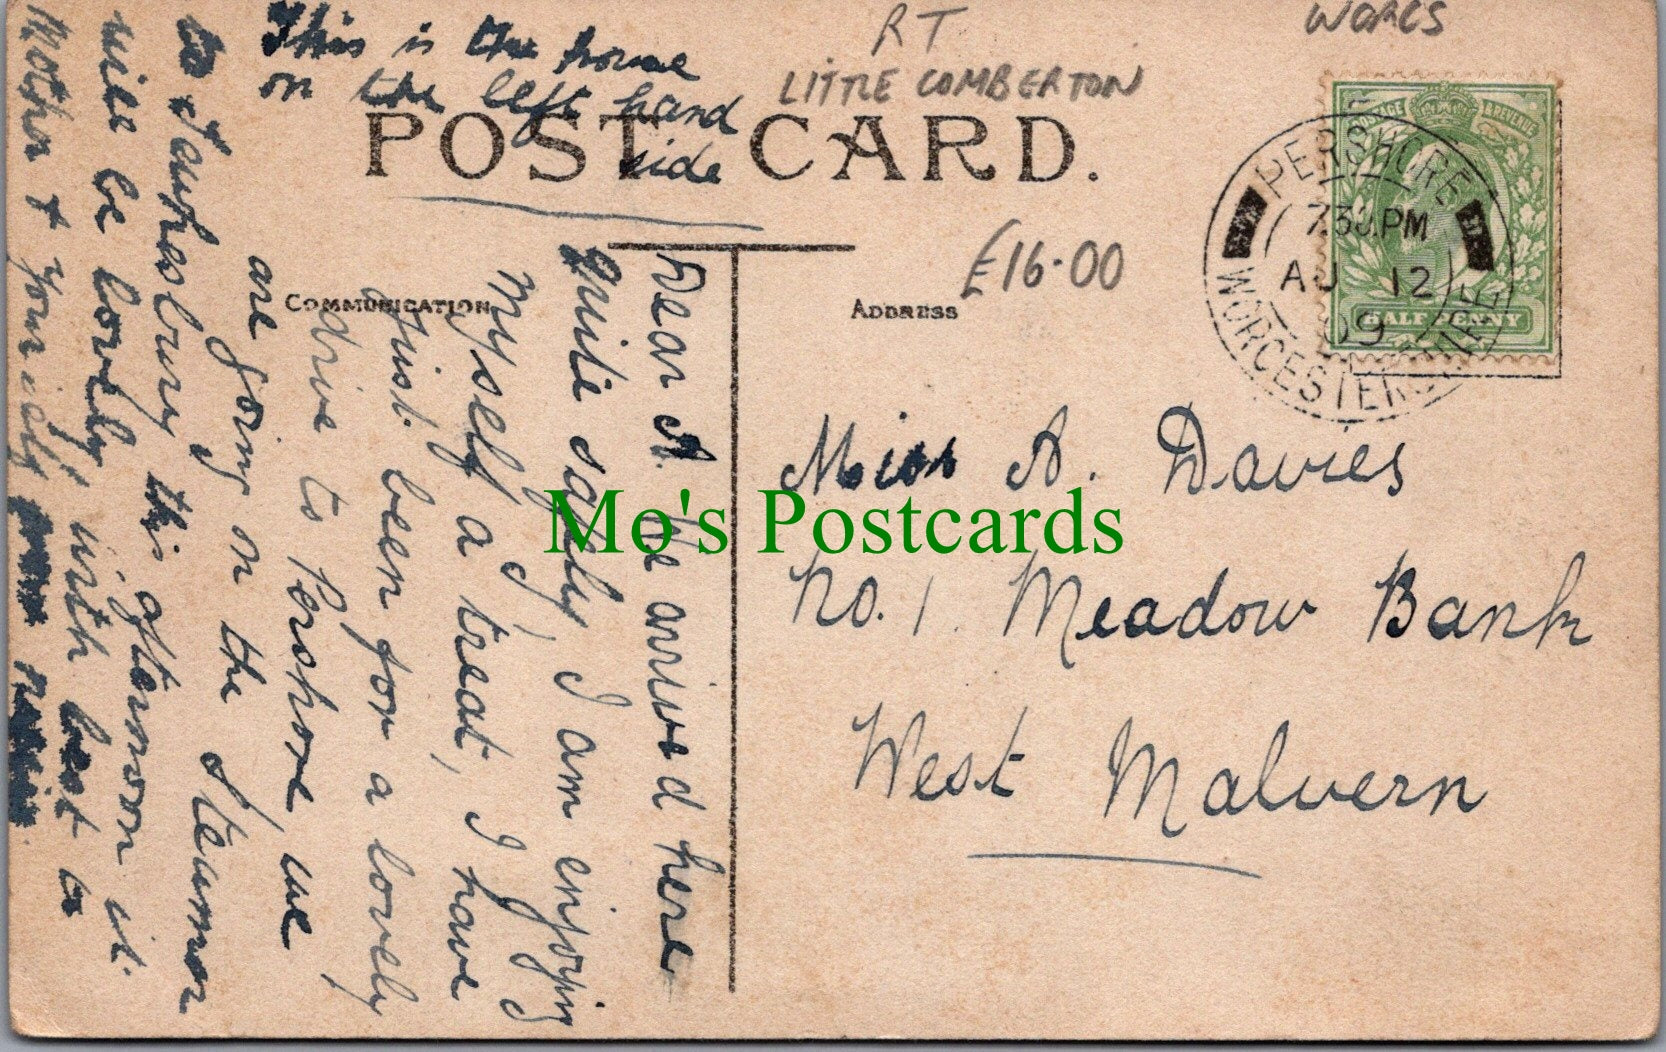 This is the house
on the left hand
side
RT
LITTLE COMBERTON
WORCS
POST CARD.
£16.00
COMMUNICATION
ADDRESS
POSTAGE & REVENUE
HALF PENNY
PERSHORE
7.30.PM
AU 12
09
WORCESTERSHIRE
Miss A. Davies
No. 1. Meadow Bank
West Malvern
Mo's Postcards
Dear A. We arrived here
quite safely, I am enjoying
myself a treat, I have
just been for a lovely
drive to Pershore, we
are going on the Steamer
to Teukesbury this afternoon it
will be lovely with best to
Mother & yourself from